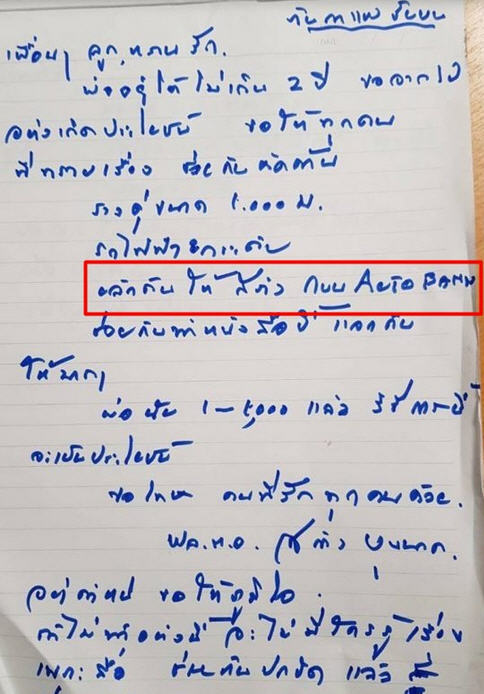 เพื่อนๆ ลูก, หลาน รัก.
พ่ออยู่ได้ไม่เกิน 2 ปี ขอจากไป
อย่างเกิดประโยชน์ ขอให้ทุกคน
ที่ทราบเรื่อง ช่วยกัน
รางคู่ขนาด 1.000 ม.
รถไฟฟ้ายกระดับ
ผลักดัน ให้ ถนน AUTO BAHN
ช่วยกันทำหนังสือนี้ แจกกัน
ให้มากๆ
พ่อ 1-5,000 แล้ว
จะเป็นประโยชน์
ขอโทษ คนที่รักทุกคนด้วย.
พล.ท.อ.
อย่าตำหนิ ขอให้ภูมิใจ.
ถ้าไม่ทำอย่างนี้ จะไม่มีใครรู้เรื่อง
เพราะสื่อ ช่วยกันปกปิด แล้ว